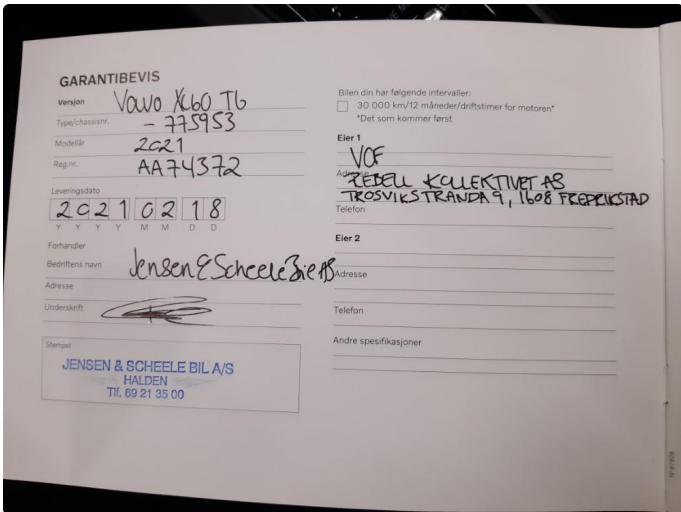 GARANTIBEVIS
Versjon Volvo XC60 T6
Type/chassisnr. - 775953
Modellår 2021
Reg.nr. AA74372
Leveringsdato
2 0 2 1 0 2 1 8
Y Y Y Y M M D D
Forhandler
Bedriftens navn Jensen & Scheele Bil AS
Adresse
Underskrift
Stempel
JENSEN & SCHEELE BIL A/S
HALDEN
Tlf. 69 21 35 00
Bilen din har følgende intervaller:
30 000 km/12 måneder/driftstimer for motoren*
*Det som kommer først
Eier 1
VCF
Adresse REDELL KOLLEKTIVET AS
TROSVIKSTRANDA 9, 1608 FREDRIKSTAD
Telefon
Eier 2
Adresse
Telefon
Andre spesifikasjoner